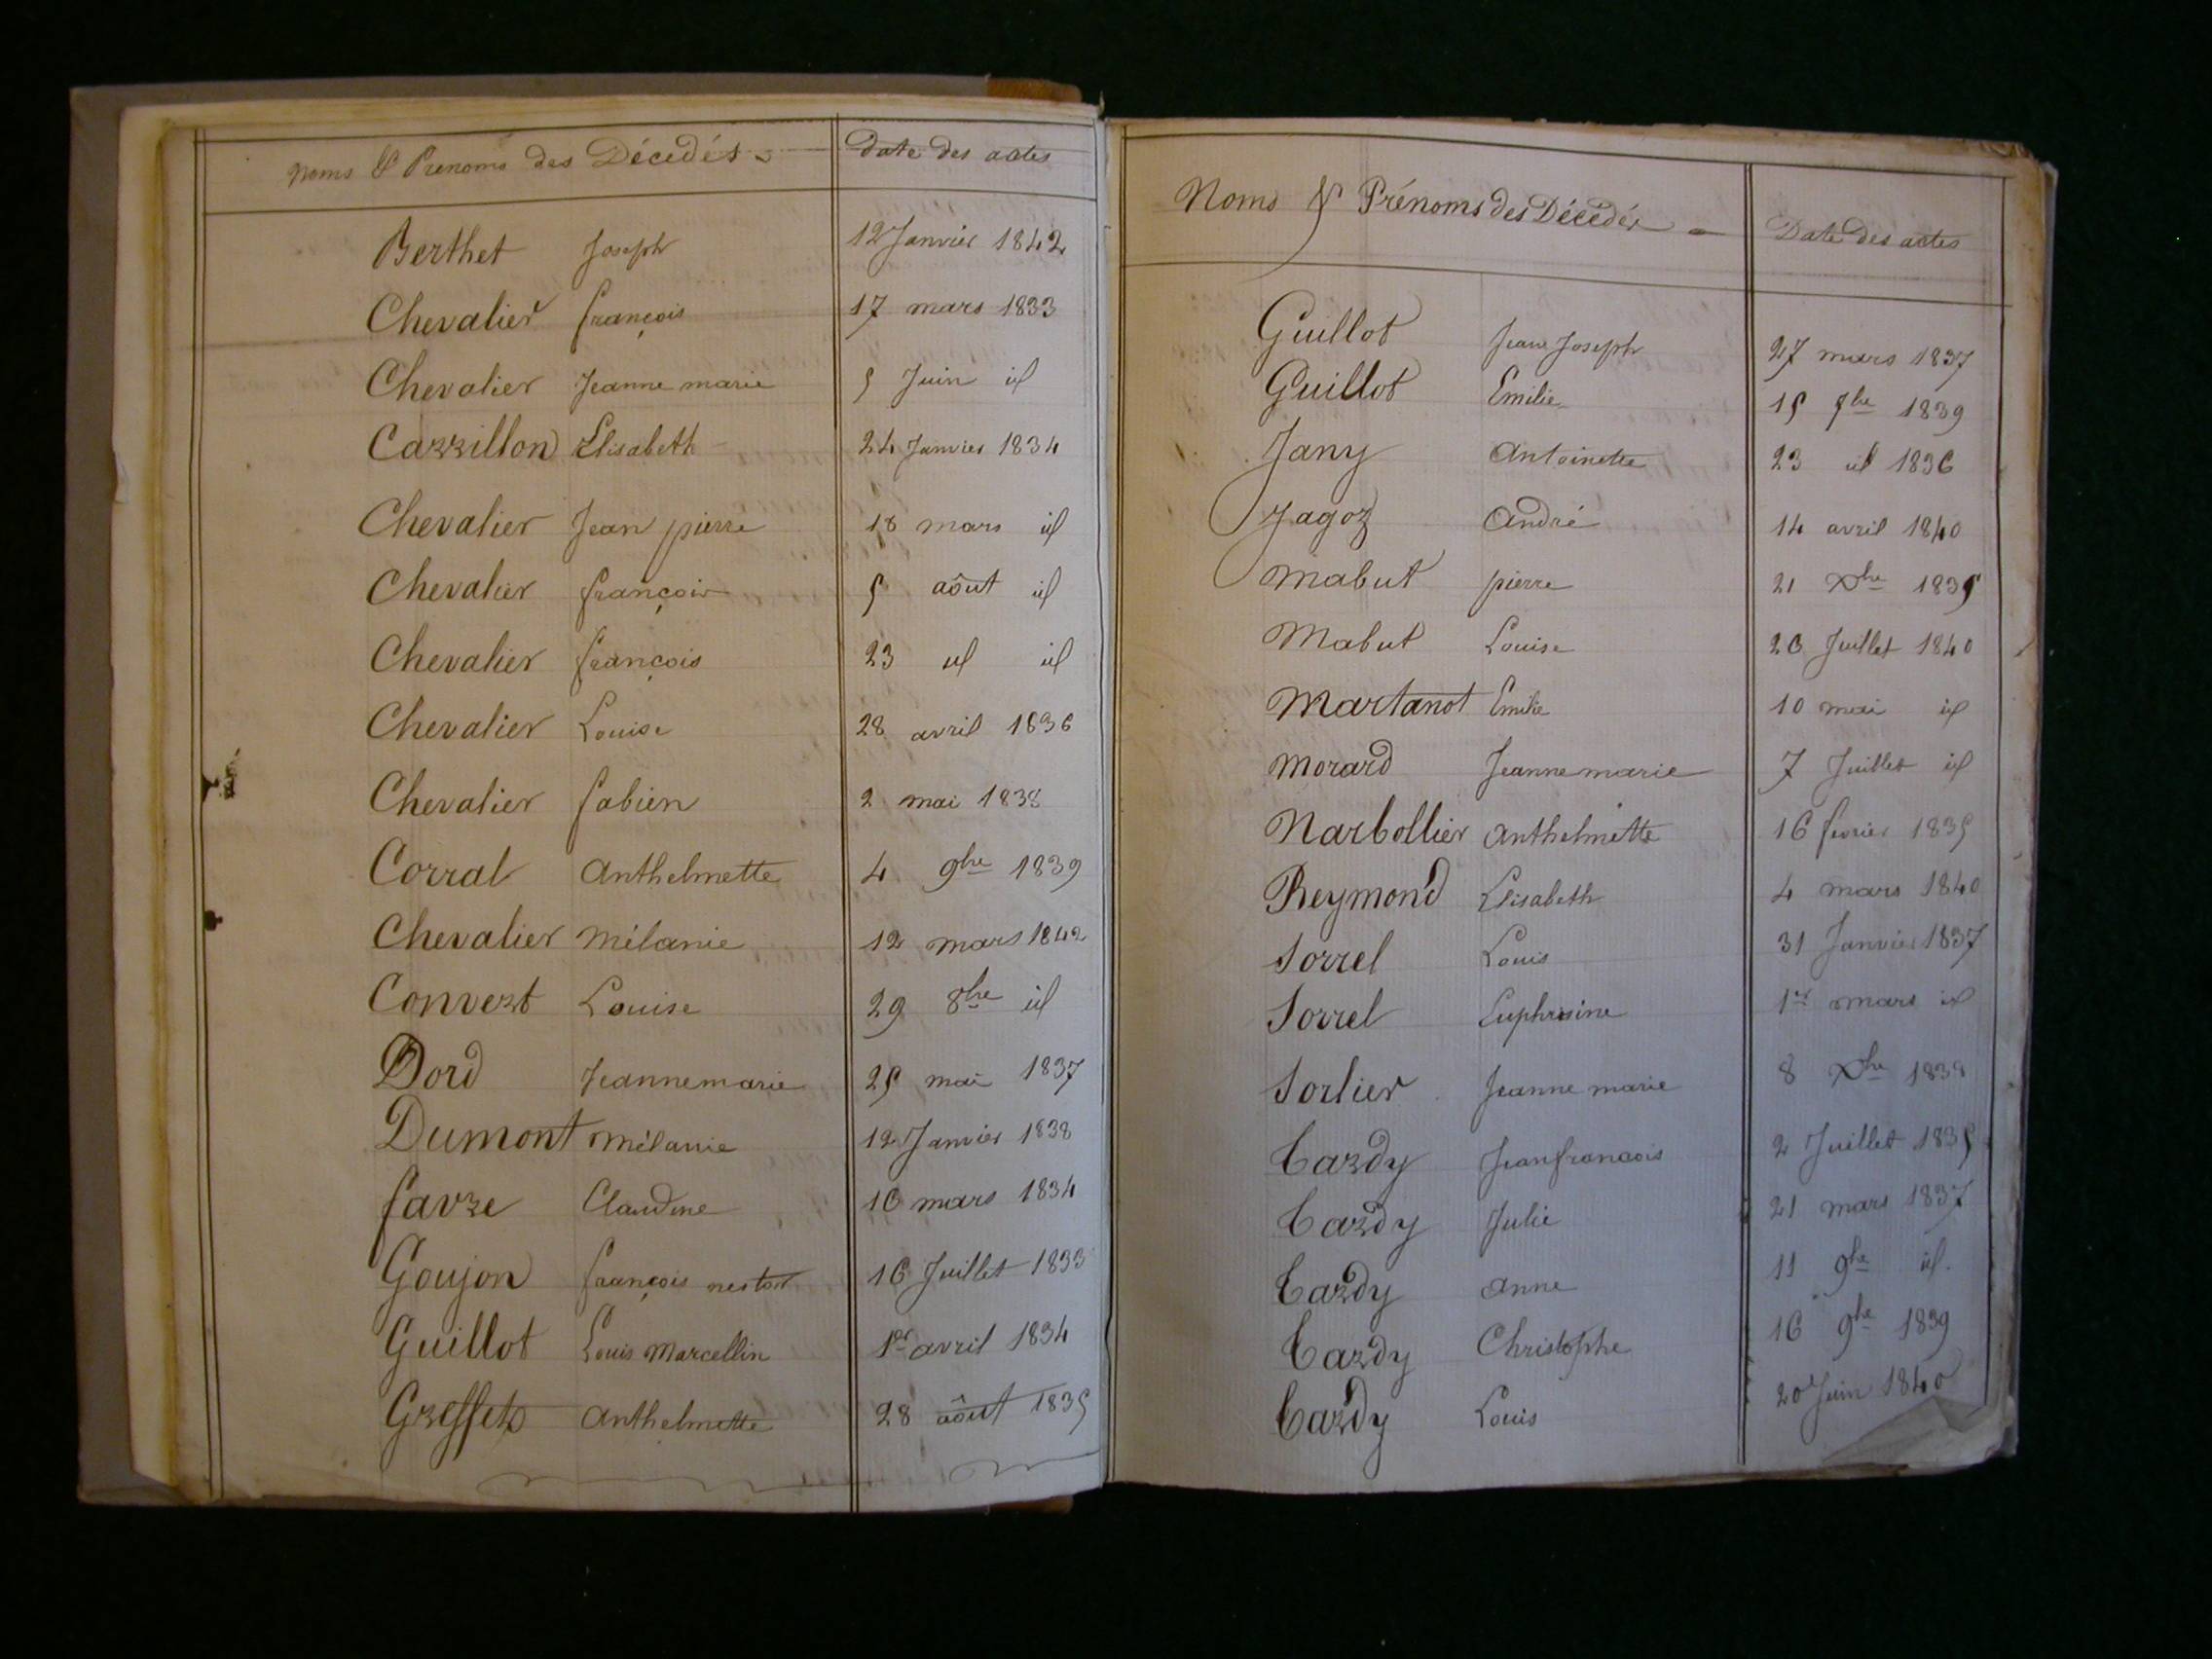 Noms & Prenoms des Décédés Date des actes
Berthet Joseph 12 Janvier 1842
Chevalier françois 17 mars 1833
Chevalier Jeanne marie 5 Juin id
Carrillon Elisabeth 24 Janvier 1834
Chevalier Jean pierre 18 mars id
Chevalier françois 5 aôut id
Chevalier françois 23 id id
Chevalier Louise 28 avril 1836
Chevalier fabien 2 mai 1838
Corral Anthelmette 4 9bre 1839
Chevalier Mélanie 12 mars 1842
Convert Louise 29 8bre id
Dord Jeannemarie 25 mai 1837
Dumont Mélanie 12 Janvier 1838
favre Claudine 16 mars 1834
Goujon françois nestor 16 Juillet 1833
Guillot Louis Marcellin 1er avril 1834
Greffet Anthelmette 28 aôut 1835
Noms & Prénoms des Décédés Date des actes
Guillot Jean Joseph 27 mars 1837
Guillot Emilie 15 1839
Jany Antoinette 23 id 1836
Jagoz André 14 avril 1840
Mabut pierre 21 Xbre 1835
Mabut Louise 26 Juillet 1840
Martanot Emilie 10 mai id
Morard Jeannemarie 7 Juillet id
Narbollier Anthelmette 16 fevrier 1835
Reymond Elisabeth 4 mars 1840
Sorrel Louis 31 Janvier 1837
Sorrel Euphrosine 1er mars id
Sorlier Jeanne marie 8 Xbre 1838
Tardy Jeanfrancois 2 Juillet 1835
Tardy Julie 21 mars 1837
Tardy Anne 11 9bre id.
Tardy Christophe 16 9bre 1839
Tardy Louis 20 Juin 1840